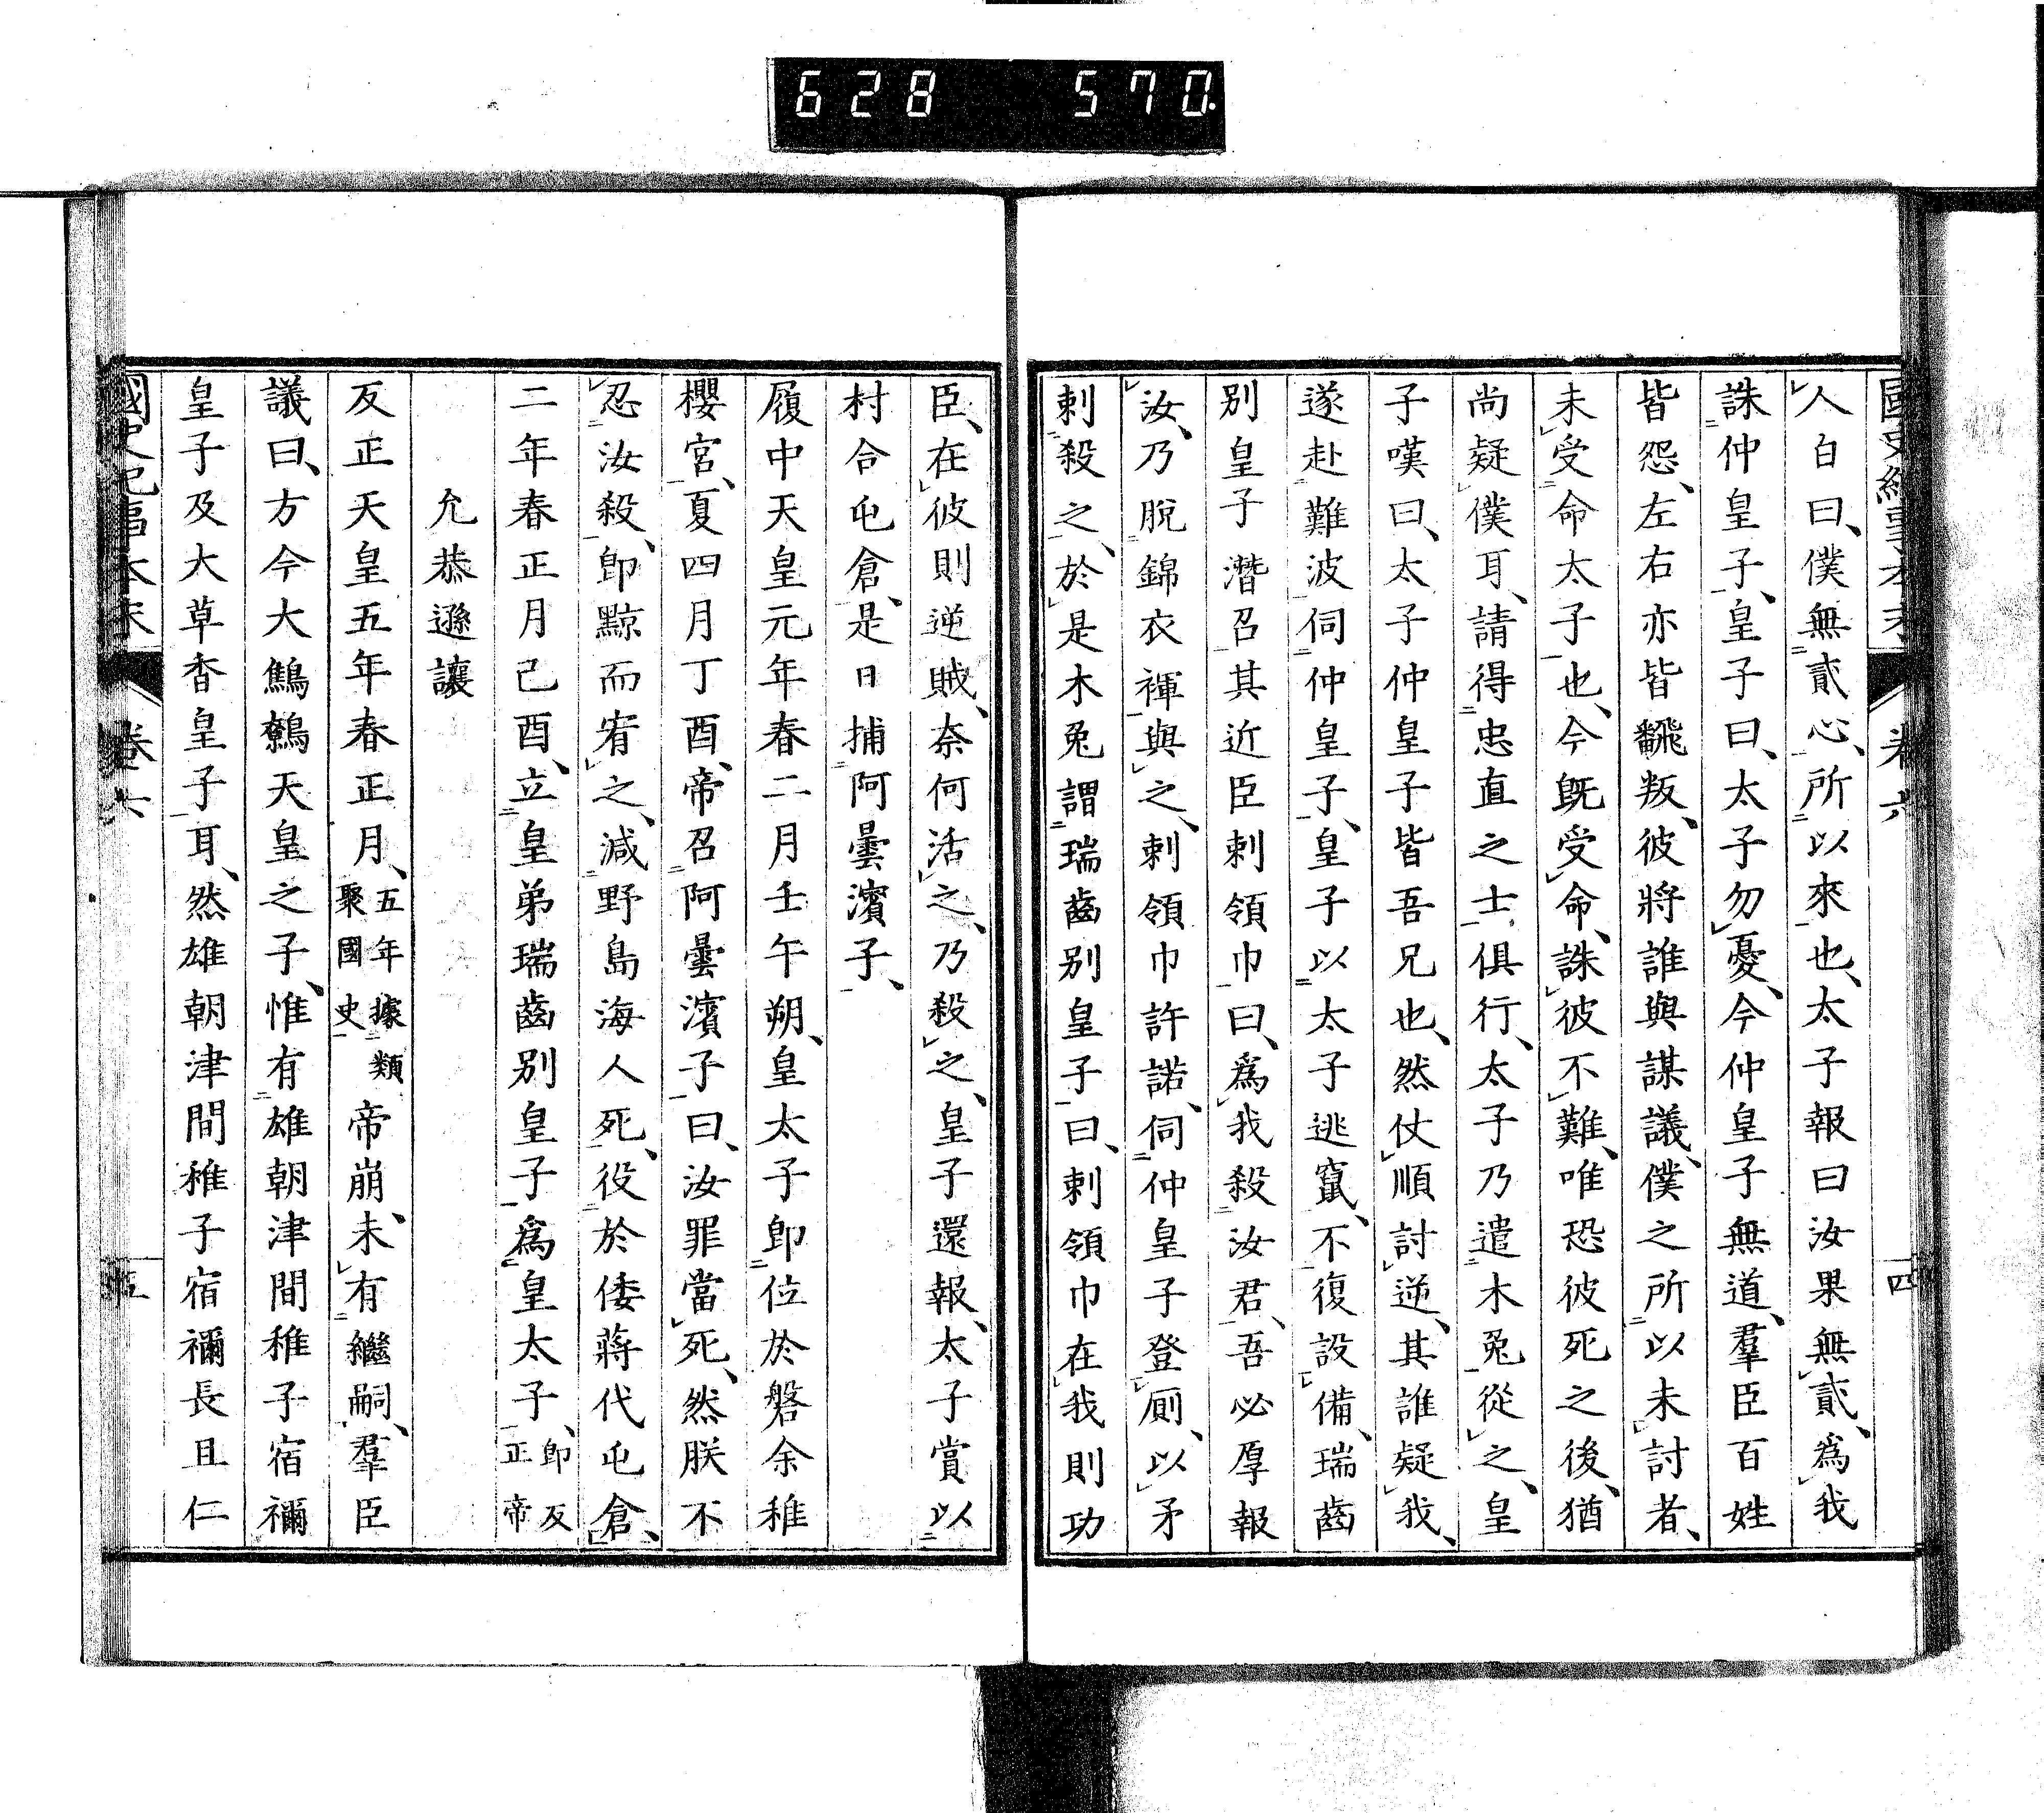 628 570.
國史紀事本末 卷六 四
人白曰、僕無貳心、所以來也、太子報曰汝果無貳、爲我
誅仲皇子、皇子曰、太子勿憂、今仲皇子無道、羣臣百姓
皆怨、左右亦皆飜叛、彼將誰與謀議、僕之所以未討者、
未受命太子也、今既受命、誅彼不難、唯恐彼死之後、猶
尚疑僕耳、請得忠直之士俱行、太子乃遣木兎從之、皇
子嘆曰、太子仲皇子皆吾兄也、然仗順討逆、其誰疑我、
遂赴難波伺仲皇子、皇子以太子逃竄、不復設備、瑞齒
別皇子潛召其近臣刺領巾曰、爲我殺汝君、吾必厚報
汝、乃脫錦衣褌與之、刺領巾許諾、伺仲皇子登厠、以矛
刺殺之、於是木兎謂瑞齒別皇子曰、刺領巾在我則功
臣、在彼則逆賊、奈何活之、乃殺之、皇子還報、太子賞以
村合屯倉、是日捕阿曇濱子、
履中天皇元年春二月壬午朔、皇太子卽位於磐余稚
櫻宮、夏四月丁酉、帝召阿曇濱子曰、汝罪當死、然朕不
忍汝殺、卽黥而宥之、減野島海人死、役於倭蔣代屯倉、
二年春正月己酉、立皇弟瑞齒別皇子爲皇太子、卽反正帝
允恭遜讓
反正天皇五年春正月、五年據類聚國史帝崩、未有繼嗣、羣臣
議曰、方今大鷦鷯天皇之子、惟有雄朝津間稚子宿禰
皇子及大草香皇子耳、然雄朝津間稚子宿禰長且仁
國史紀事本末 卷六 五